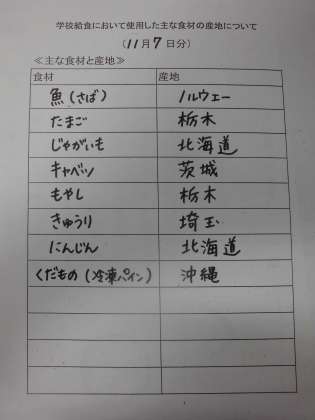 学校給食において使用した主な食材の産地について
(11月7日分)
≪主な食材と産地≫
食材 産地
魚(さば) ノルウェー
たまご 栃木
じゃがいも 北海道
キャベツ 茨城
もやし 栃木
きゅうり 埼玉
にんじん 北海道
くだもの(冷凍パイン) 沖縄